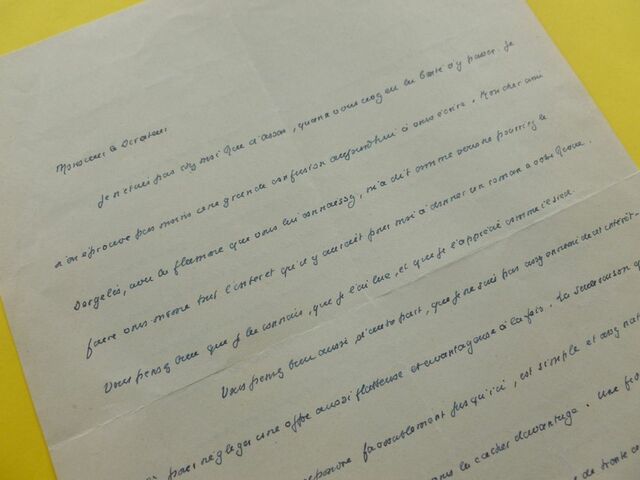 Monsieur le Directeur
Je n'étais pas chez moi que d'assou, quand vous avez eu la bonté d'y passer. Je
n'en éprouve pas moins une grande confusion aujourd'hui à vous écrire. Mon cher ami
Dorgelès, avec la flamme que vous lui connaissez, m'a dit comme vous ne pourriez le
faire vous même tout l'intérêt qu'il y aurait pour moi à donner un roman à votre Revue.
Vous pensez bien que je la connais, que je l'ai lue, et que je l'apprécie comme il se doit.
Vous pensez bien aussi, d'autre part, que je ne suis pas assez ennemi de mes intérêts
pour négliger une offre aussi flatteuse et avantageuse à la fois. La seule raison q
répondre favorablement jusqu'ici, est simple et assez nat
vous la cacher davantage. Une
de trente a